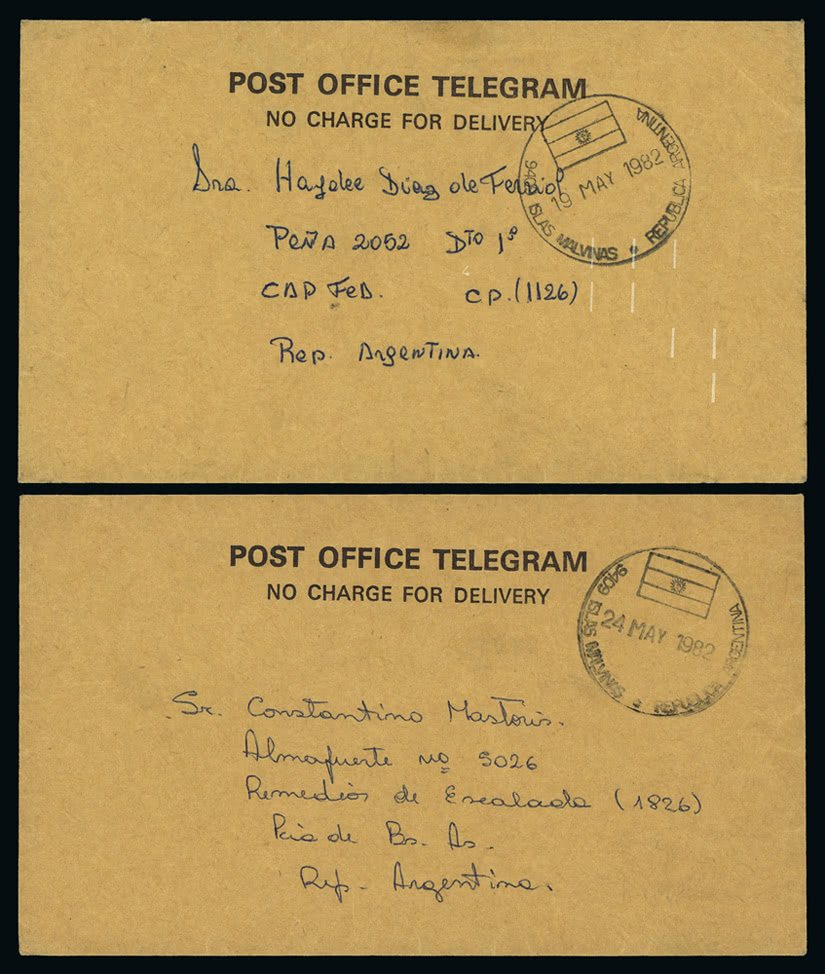 POST OFFICE TELEGRAM
NO CHARGE FOR DELIVERY
9409 ISLAS MALVINAS REPUBLICA ARGENTINA
19 MAY 1982
Sra. Haydee Diaz de
PEÑA 2052 DTO 1º
CAP FeD. CP. (1126)
Rep. ArgenTINA.
POST OFFICE TELEGRAM
NO CHARGE FOR DELIVERY
9409 ISLAS MALVINAS REPUBLICA ARGENTINA
24 MAY 1982
Sr. Constantino Mastoris.
Almafuerte nº 5026
Remedios de Escalada (1826)
Pcia de Bs. As.
Rep. Argentina.